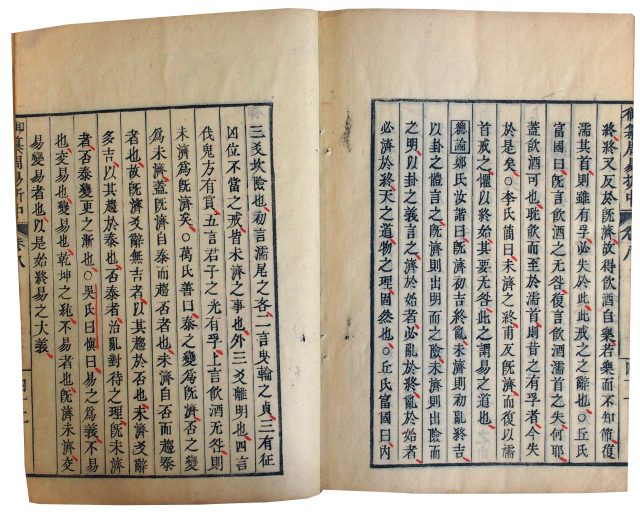 御纂周易折中 卷八
終終又反於旣濟故得飲酒自樂若樂而不知節復
濡其首則雖有孚必失於此此戒之之辭也○丘氏
富國曰旣言飲酒之无咎復言飲酒濡首之失何耶
蓋飲酒可也耽飲而至於濡首則昔之有孚者今失
於是矣○李氏簡曰未濟之終甫反旣濟而復以濡
首戒之懼以終始其要无咎此之謂易之道也
總論鄭氏汝諧曰旣濟初吉終亂未濟則初亂終吉
以卦之體言之旣濟則出明而之險未濟則出險而
之明以卦之義言之濟於始者必亂於終亂於始者
必濟於終天之道物之理固然也○丘氏富國曰內
三爻坎險也初言濡尾之吝二言曳輪之貞三有征
凶位不當之戒皆未濟之事也外三爻離明也四言
伐鬼方有賞五言君子之光有孚上言飲酒无咎則
未濟爲旣濟矣○萬氏善曰泰之變爲旣濟否之變
爲未濟蓋旣濟自泰而趨否者也未濟自否而趨泰
者也故旣濟爻辭無吉者以其趨於否也未濟爻辭
多吉以其趨於泰也否泰者治亂對待之理旣未濟
者否泰變更之漸也○吳氏曰愼曰易之爲義不易
也交易也變易也乾坤之純不易者也旣濟未濟交
易變易者也以是始終易之大義
御纂周易折中 卷八